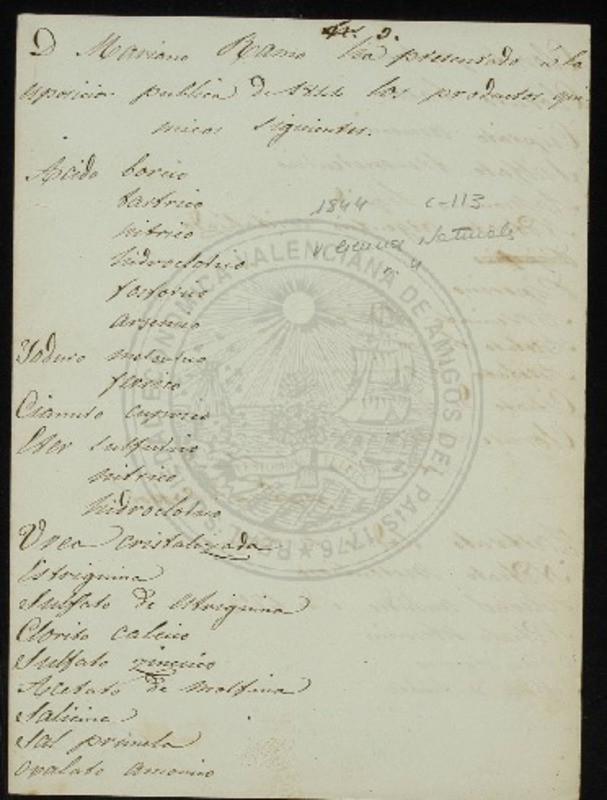 D. Mariano Ramo ha presentado á la
esposicion publica de 1844 los productos qui
micos siguientes.
Acido borico
tartrico
nitrico
hidroclorico
fosforico
arsenico
1844 C-113
V Ciencias Naturals
nº 4
Yoduro mercurico
ferrico
Cianuro cuprico
Eter sulfurico
nitrico
hidroclorico
Urea cristalizada
Estriquina
Sulfato de estriquina
Clorito calcico
Sulfato zincico
Acetato de morfina
Salicina
Sal prunela
oxalato amonico
REAL SOCIEDAD ECONOMICA VALENCIANA DE AMIGOS DEL PAIS 1776